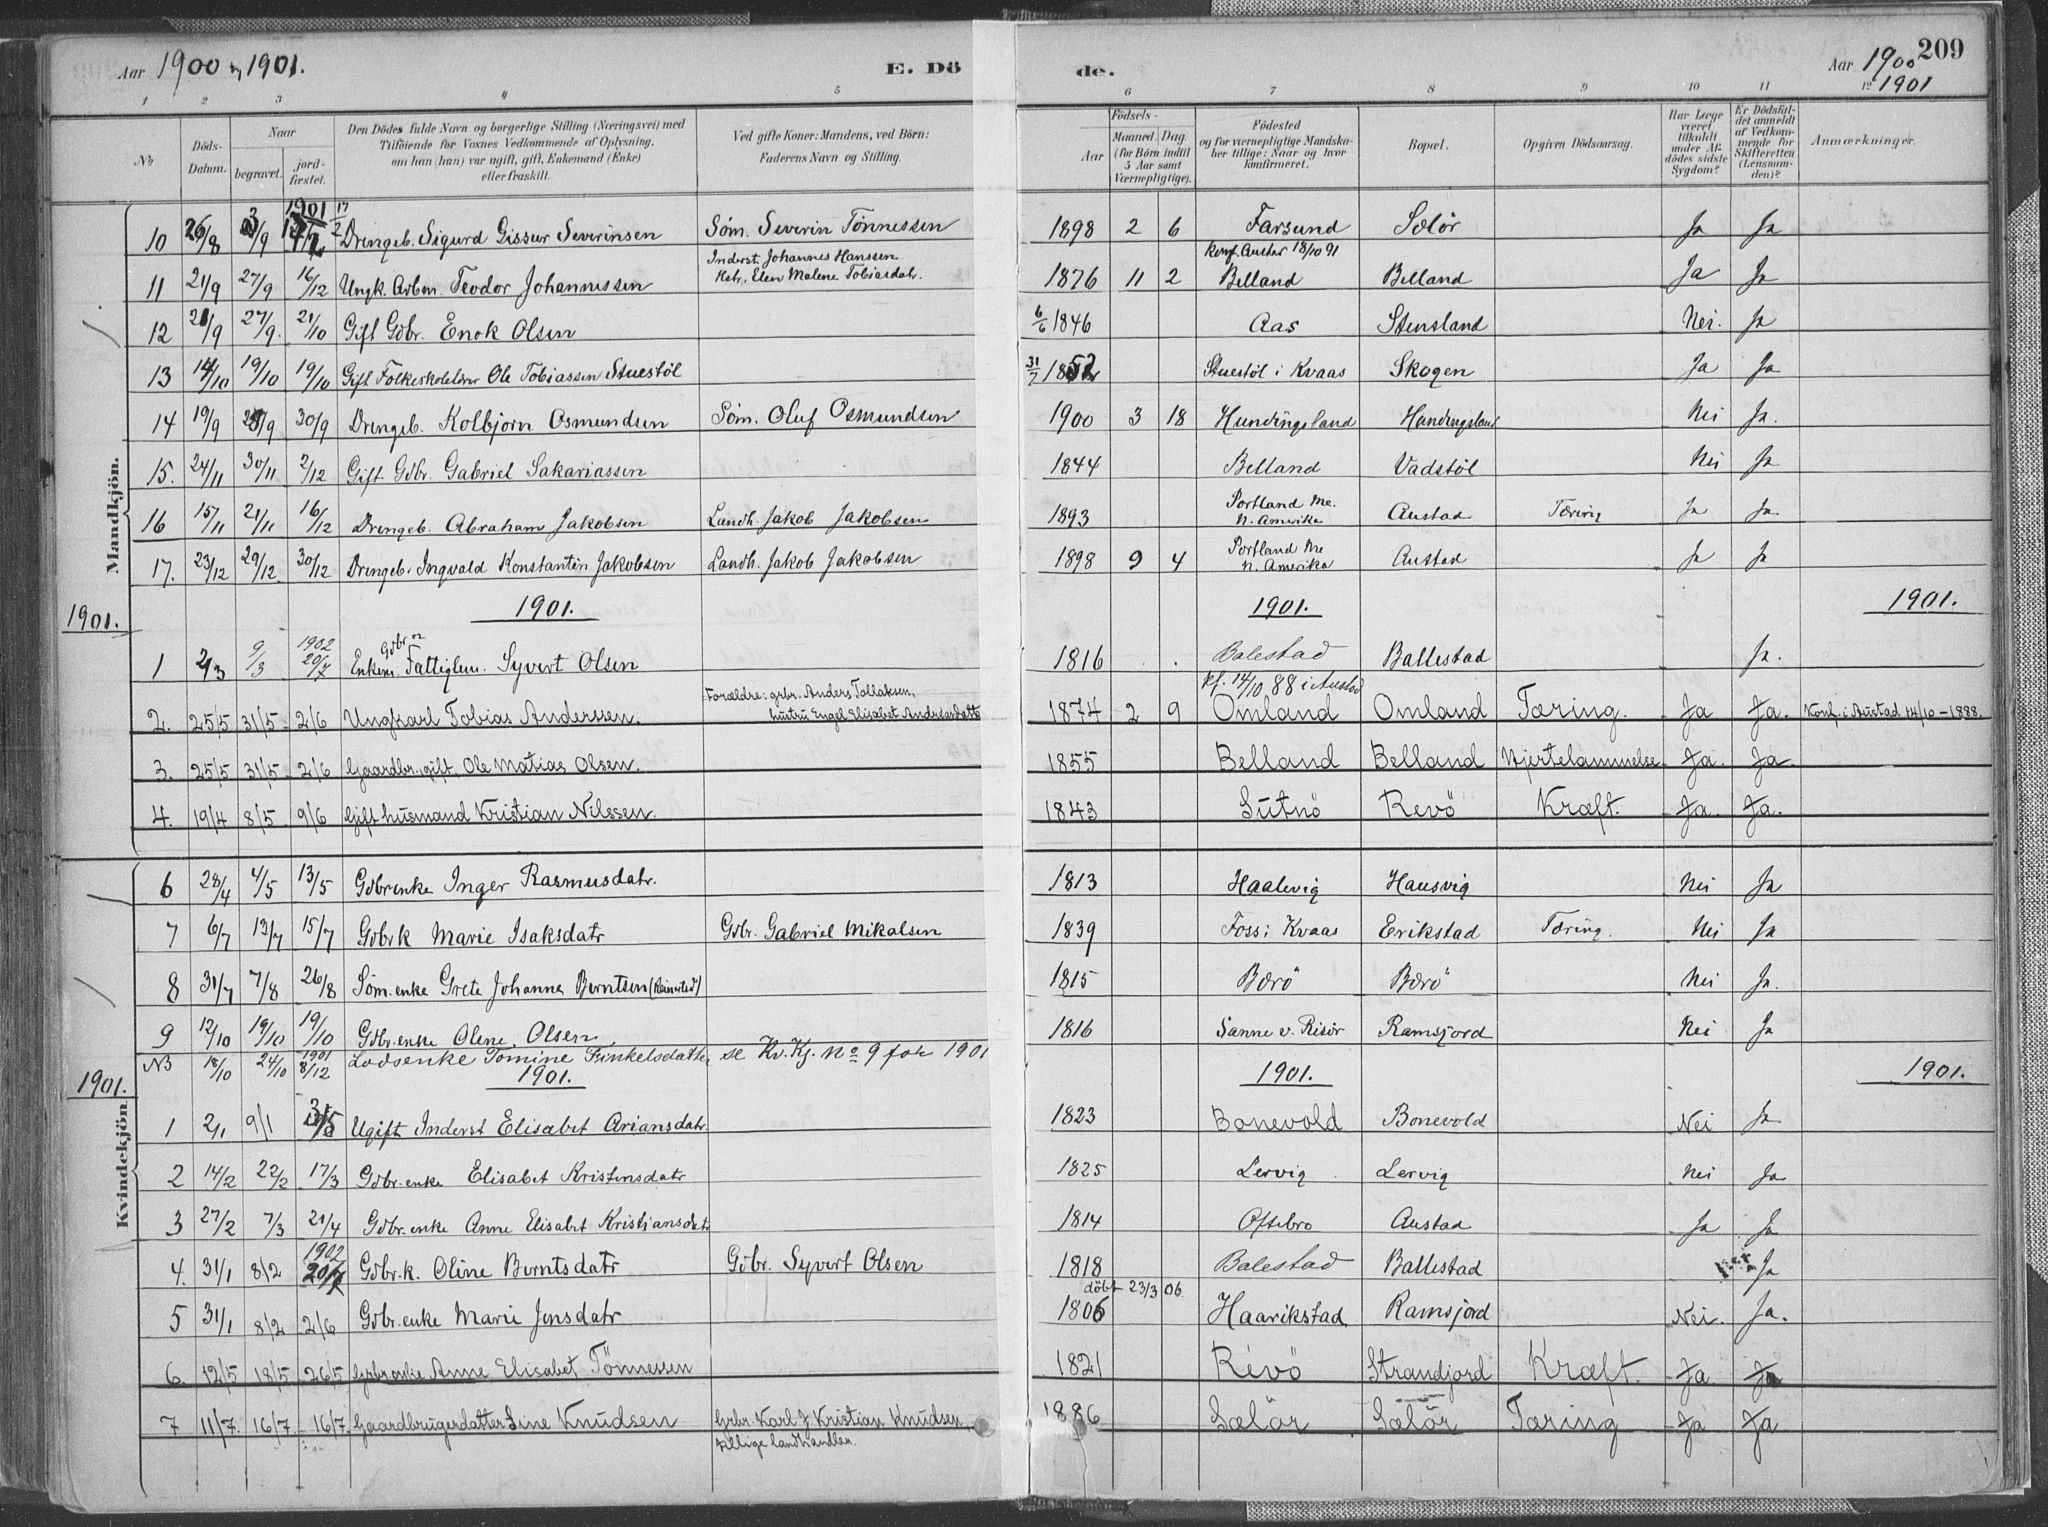 Aar 1900 og 1901. E. Dö de. Aar 1900 1901 209
1 2 3 4 5 6 7 8 9 10 11 12
No Döds-Datum. Naar begravet. jord-fæstet. Den Dödes fulde Navn og borgerlige Stilling (Næringsvei) med Tilföiende for Voxnes Vedkommende af Oplysning, om han (hun) var ugift, gift, Enkemand (Enke) eller fraskilt. Ved gifte Koner: Mandens, ved Börn: Faderens Navn og Stilling. Födsels- Aar Maaned. Dag. (for Börn indtil 5 Aar samt Værnepligtige). Födested og for værnepligtige Mandskaber tillige: Naar og hvor konfirmeret. Bopæl. Opgiven Dödsaarsag. Har Læge været tilkaldt under Afdödes sidste Sygdom? Er Dödsfaldet anmeldt af Vedkommende for Skifteretten (Lensmanden)? Anmærkninger.
Mandkjön.
10 26/8 /9 1901 17/2 Drengeb. Sigurd Gissur Severinsen Söm. Severin Tönnessen 1898 2 6 Farsund Sælör Ja Ja
11 21/9 27/9 16/12 Ungk. Arbm. Teodor Johannessen Inderst Johannes Hanssen Hstr. Elen Malene Tobiasdatr. 1876 11 2 konf. Austad 18/10 91 Belland Belland Ja Ja
12 21/9 27/9. 21/10 Gift Gbr. Enok Olsen 6/6 1846 Aas Stensland Nei. Ja
13 14/10 19/10 19/10 Gift Folkeskolelærer Ole Tobiassen Stuestöl 31/7 1852 Stuestöl i Kvaas Skogen Ja Ja
14 19/9 /9 30/9 Drengeb. Kolbjörn Osmundsen Söm. Oluf Osmundsen 1900 3 18 Hundingsland Hundingsland Nei Ja.
15. 24/11 30/11 2/12 Gift Gbr. Gabriel Sakariassen 1844 Belland Vadstöl Nei Ja
16 15/11 21/11 16/12 Drengeb. Abraham Jakobsen Landh. Jakob Jakobsen 1893 Portland Me. N. Amerika Austad Tæring Ja Ja.
17. 23/12 29/12 30/12 Drengeb. Ingvald Konstantin Jakobsen Landh. Jakob Jakobsen 1898 9 4 Portland Me N. Amerika Austad Ja Ja
1901. 1901. 1901. 1901.
1 2/3 9/3 1902 20/7 Enkem. Gbr. og Fattiglem. Syvert Olsen 1816 Balestad Ballestad Ja.
2. 25/5 31/5 2/6 Ungkarl Tobias Anderssen. Forældre: grbr. Anders Tollaksen, hustru Engel Elisabet Andreasdatter 1874 2 9 kf. 14/10 88 i Austad Omland Omland Tæring. Ja Ja. Konf. i Austad 14/10-1888.
3. 25/5 31/5 2/6 Gaardbr. gift. Ole Matias Olsen. 1855 Belland Belland Hjertelammelse Ja. Ja.
4. 19/4 8/5 9/6 Gift husmand Kristian Nilssen. 1843 Sutnö Revö Kræft. Ja. Ja.
Kvindekjön.
6 28/4 4/5 13/5 Gbr.enke Inger Rasmusdatr. 1813 Haalevig Hausvig Nei Ja
7 6/7 13/7 15/7 Gbrk Marie Isaksdatr Gbr. Gabriel Mikalsen 1839 Foss i Kvaas Erikstad Tæring. Nei Ja
8 31/7 7/8 26/8 Söm.enke Grete Johanne Berntsen 1815 Bærö Bærö Nei Ja.
9 12/10 19/10 19/10 Gbr.enke Olene Olsen 1816 Sanne v. Risör Ramsfjord Nei Ja
NB 18/10 24/10 1901 8/12 Lodsenke Tomine Finkelsdatter se Kv. Kj. No 9 for 1901
1901. 1901. 1901. 1901.
1 2/1 9/1 Ugift Inderst Elisabet Ariansdatr. 1823 Bonevold Bonevold Nei Ja
2 14/2 22/2 17/3 Gbr.enke Elisabet Kristensdatr 1825 Lervig Lervig Nei Ja
3 27/2 7/3 21/4 Gbr.enke Anne Elisabet Kristiansdatr 1814 Oftebro Austad Ja Ja
4. 31/1 8/2 1902 20/7 Gbr.k. Oline Berntsdatr Gbr. Syvert Olsen 1818 Balestad Ballestad Ja
5 31/1 8/2 2/6 Gbr.enke Marie Jensdatr döbt 23/3 06. 1806 Haarikstad Ramsfjord Nei. Ja.
6. 12/5 18/5 26/5 Grbr.enke Anne Elisabet Tönnessen 1821 Revö Strandfjord Kræft. Ja. Ja
7 11/7. 16/7 16/7. Gaardbrugerdatter Sine Knudsen Grbr. Karl J. Kristian Knudsen, tillige landhandler. 1886 Sælör Sælör Tæring Ja Ja